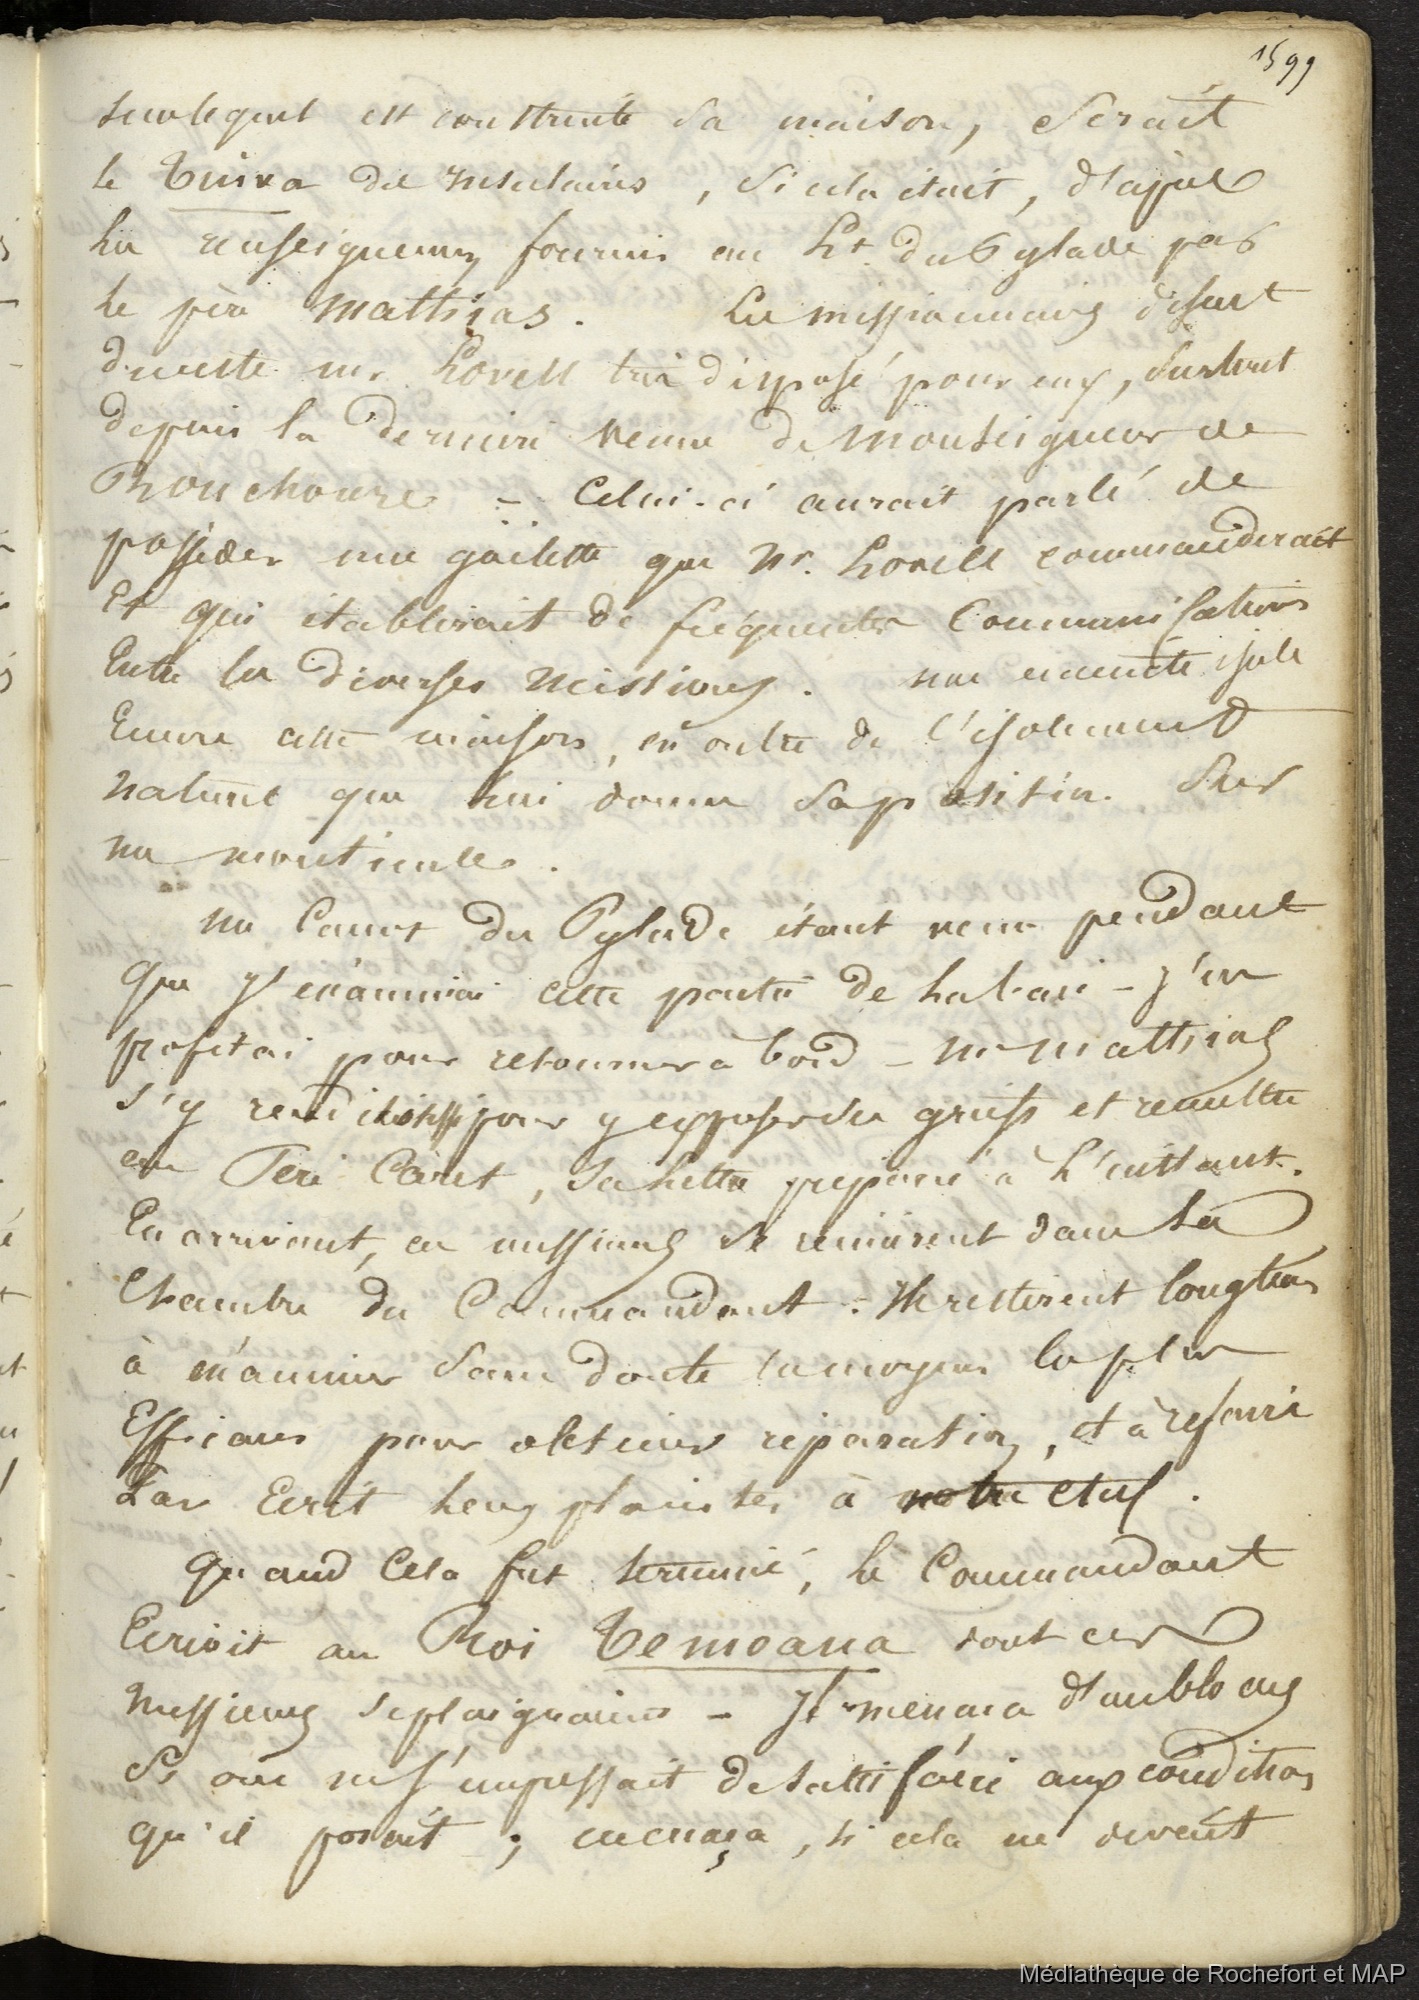 1599
sur lequel est construite sa maison, serait
le Tuiva des insulaires, si cela était, d'après
les renseignemens fournis au Lt. du Pylade par
le père Mathias. Les missionnaires disent
du reste mr. Lovell très disposé pour eux, surtout
depuis la dernière venue de Monseigneur de
Rouchouze - Celui-ci aurait parlé de
posséder une goëlette que Mr. Lovell commanderait
Et qui établirait de fréquentes Communications
Entre les diverses missions. une enceinte isole
Encore cette maison, en outre de l'isolement
naturel que lui donne sa position sur
un monticule.
un Canot du Pylade étant venu pendant
que j'éxaminai cette partie de la baie - j'en
profitai pour retourner à bord - Mr Mathias
s'y rendit aussi pour y exposer ses griefs et remettre
au Père Caret, sa lettre préparée à l'instant.
En arrivant, ces messieurs se réunirent dans la
Chambre du Commandant : Ils restèrent longtems
à éxaminer sans doute les moyens les plus
Efficaces pour obtenir réparation, et à refaire
Par Ecrit leurs plaintes à notre chef.
quand Cela fut terminé, le Commandant
Ecrivit au Roi Temoana dont ces
Messieurs se plaignaient - Il menaça d'un blocus
Si on ne s'empressait de satisfaire aux conditions
qu'il posait ; menaça, si cela ne devait
Médiathèque de Rochefort et MAP